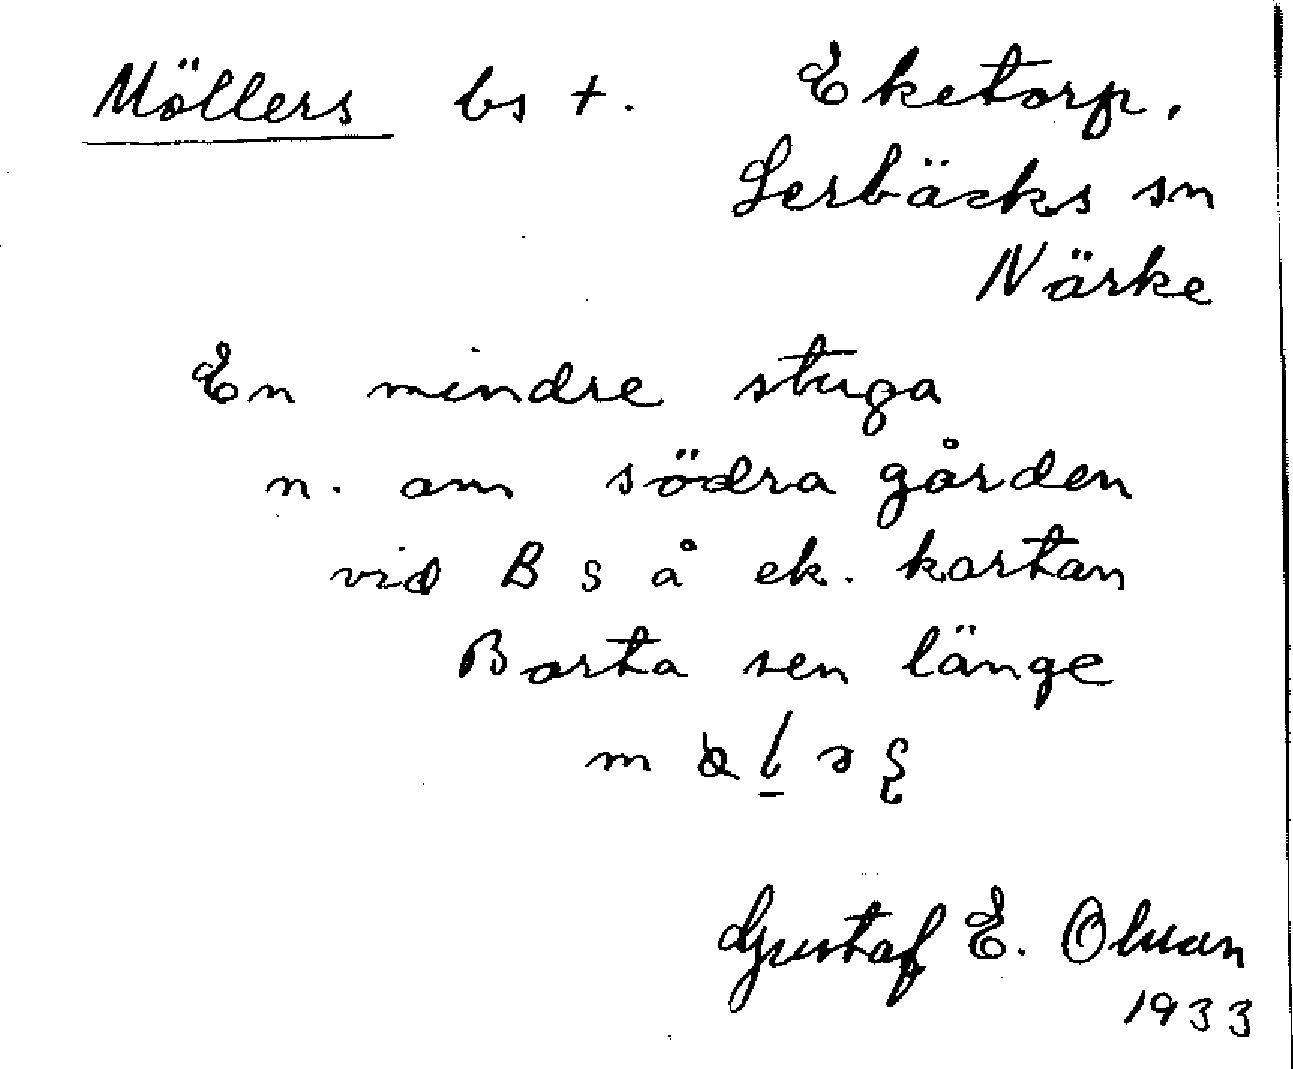 Möllers bs +. Eketorp,
Lerbäcks sn
Närke
En mindre stuga
n. om södra gården
vid B s å ek. kartan
Borta sen länge
Gustaf E. Olsson
1933